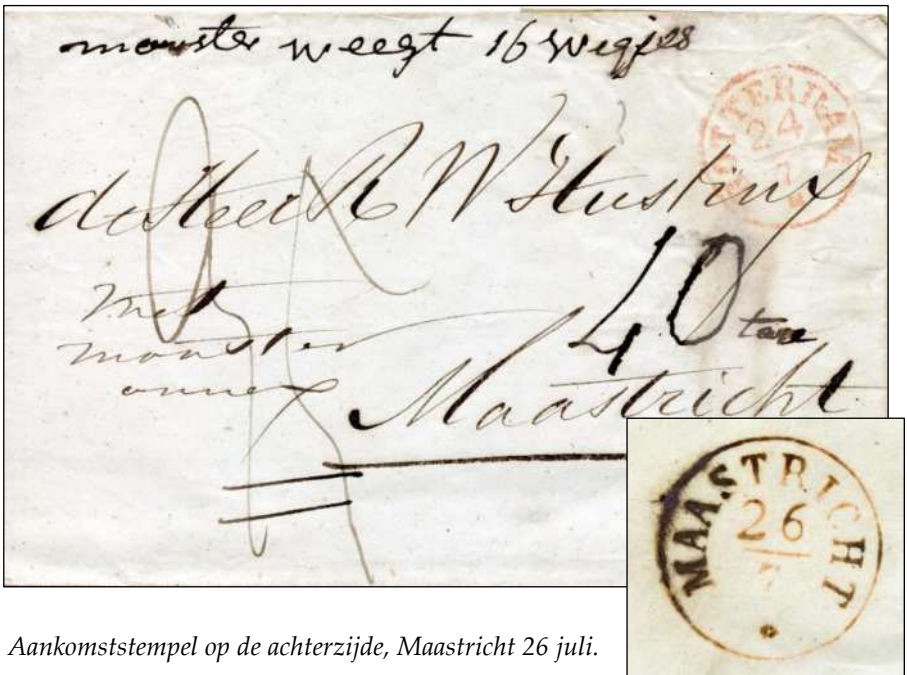 monster weegt 16 wigjes
ROTTERDAM
24
7
de Heer R W
met
monster
annex
40
Maastricht
MAASTRICHT
26
7
Aankomststempel op de achterzijde, Maastricht 26 juli.